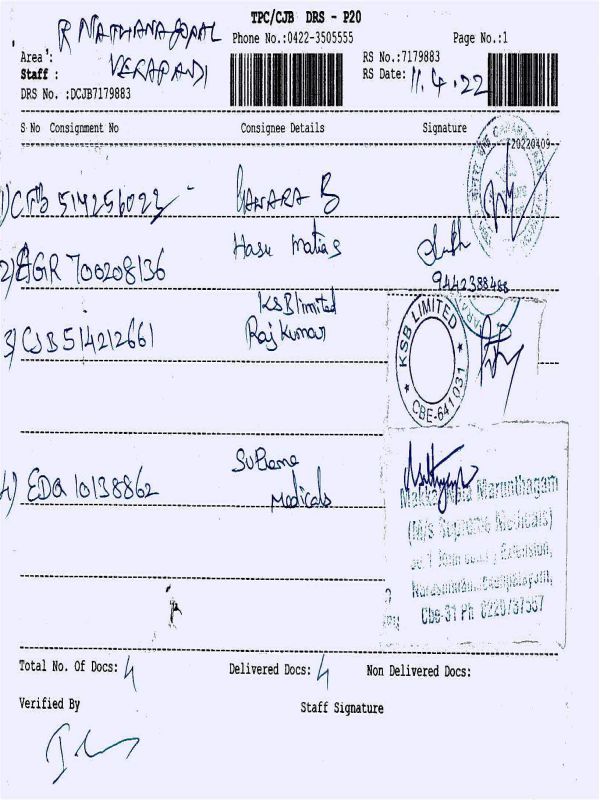 TPC/CJB DRS - P20
R NATHANAGOPAL
Phone No.:0422-3505555
Page No.:1
Area :
VERAPANDI
RS No.:7179883
Staff :
RS Date: 11.4.22
DRS No. :DCJB7179883
S No Consignment No Consignee Details Signature
20220409
1) CJB 514256023
CANARA B
2) AGR 700208136
Hasu Matias
9442388488
3) CJB 514212661
KSB limited
Raj Kumar
KSB LIMITED
CBE-641 031
4) EDQ 10138862
Supreme
Medicals
Makkal Nala Marunthagam
(M/s Supreme Medicals)
Extension,
Cbe-31 Ph
Total No. Of Docs: 4
Delivered Docs: 4
Non Delivered Docs:
Verified By
Staff Signature